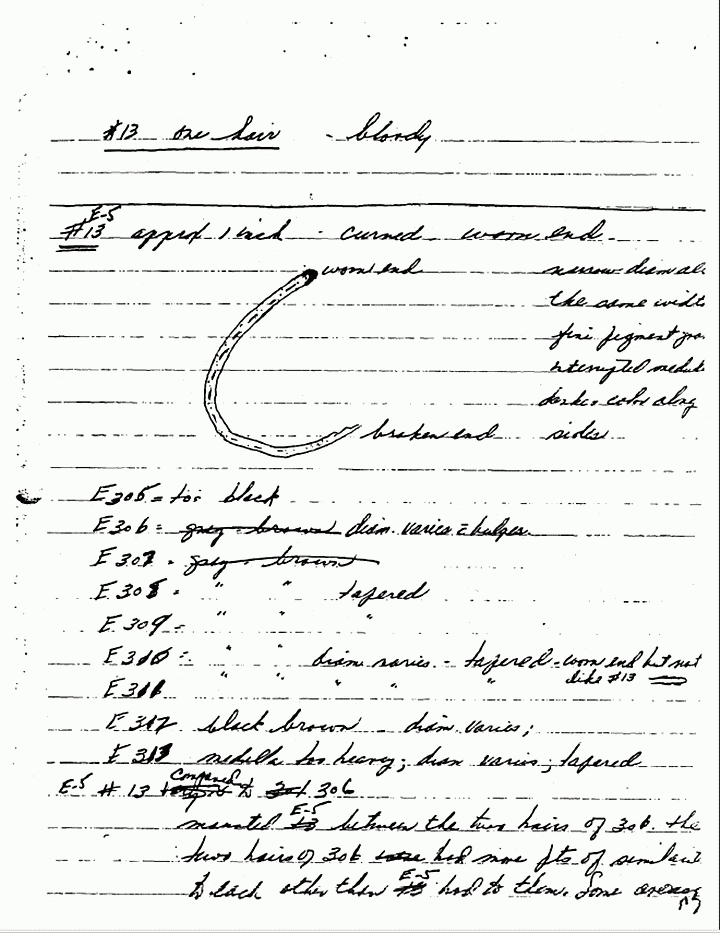 #13 one hair - bloody
E-5
#13 approx 1 inch - curved - worn end
worn end narrow diam al
the same widt
fine pigment gra
interrupted medul
darker color along
broken end sides
E 305 = too black
E 306 = gray - brown diam. varies = bulges
E 307 = gray - brown
E 308 = " " tapered
E 309 = " " "
E 310 = " " diam varies - tapered - worn end but not
like #13
E 311 " " " " "
E 312 black brown - diam varies;
E 313 medulla too heavy; diam varies; tapered
E-5 #13 compared to 306
mounted E-5 between the two hairs of 306. The
two hairs of 306 had more pts of similarit
to each other than E-5 had to them. Some average